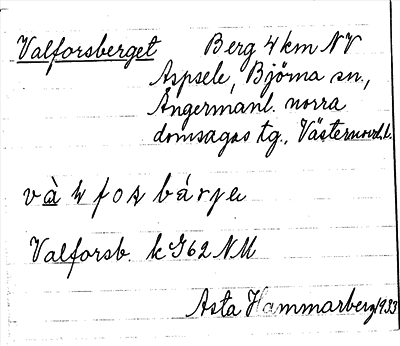 Valforsberget Berg 4 km NV
Aspsele, Björna sn,
Ångermanl. norra
domsagas tg., Västernorrl. l.
Valforsb. k G62 NM
Asta Hammarberg 1933